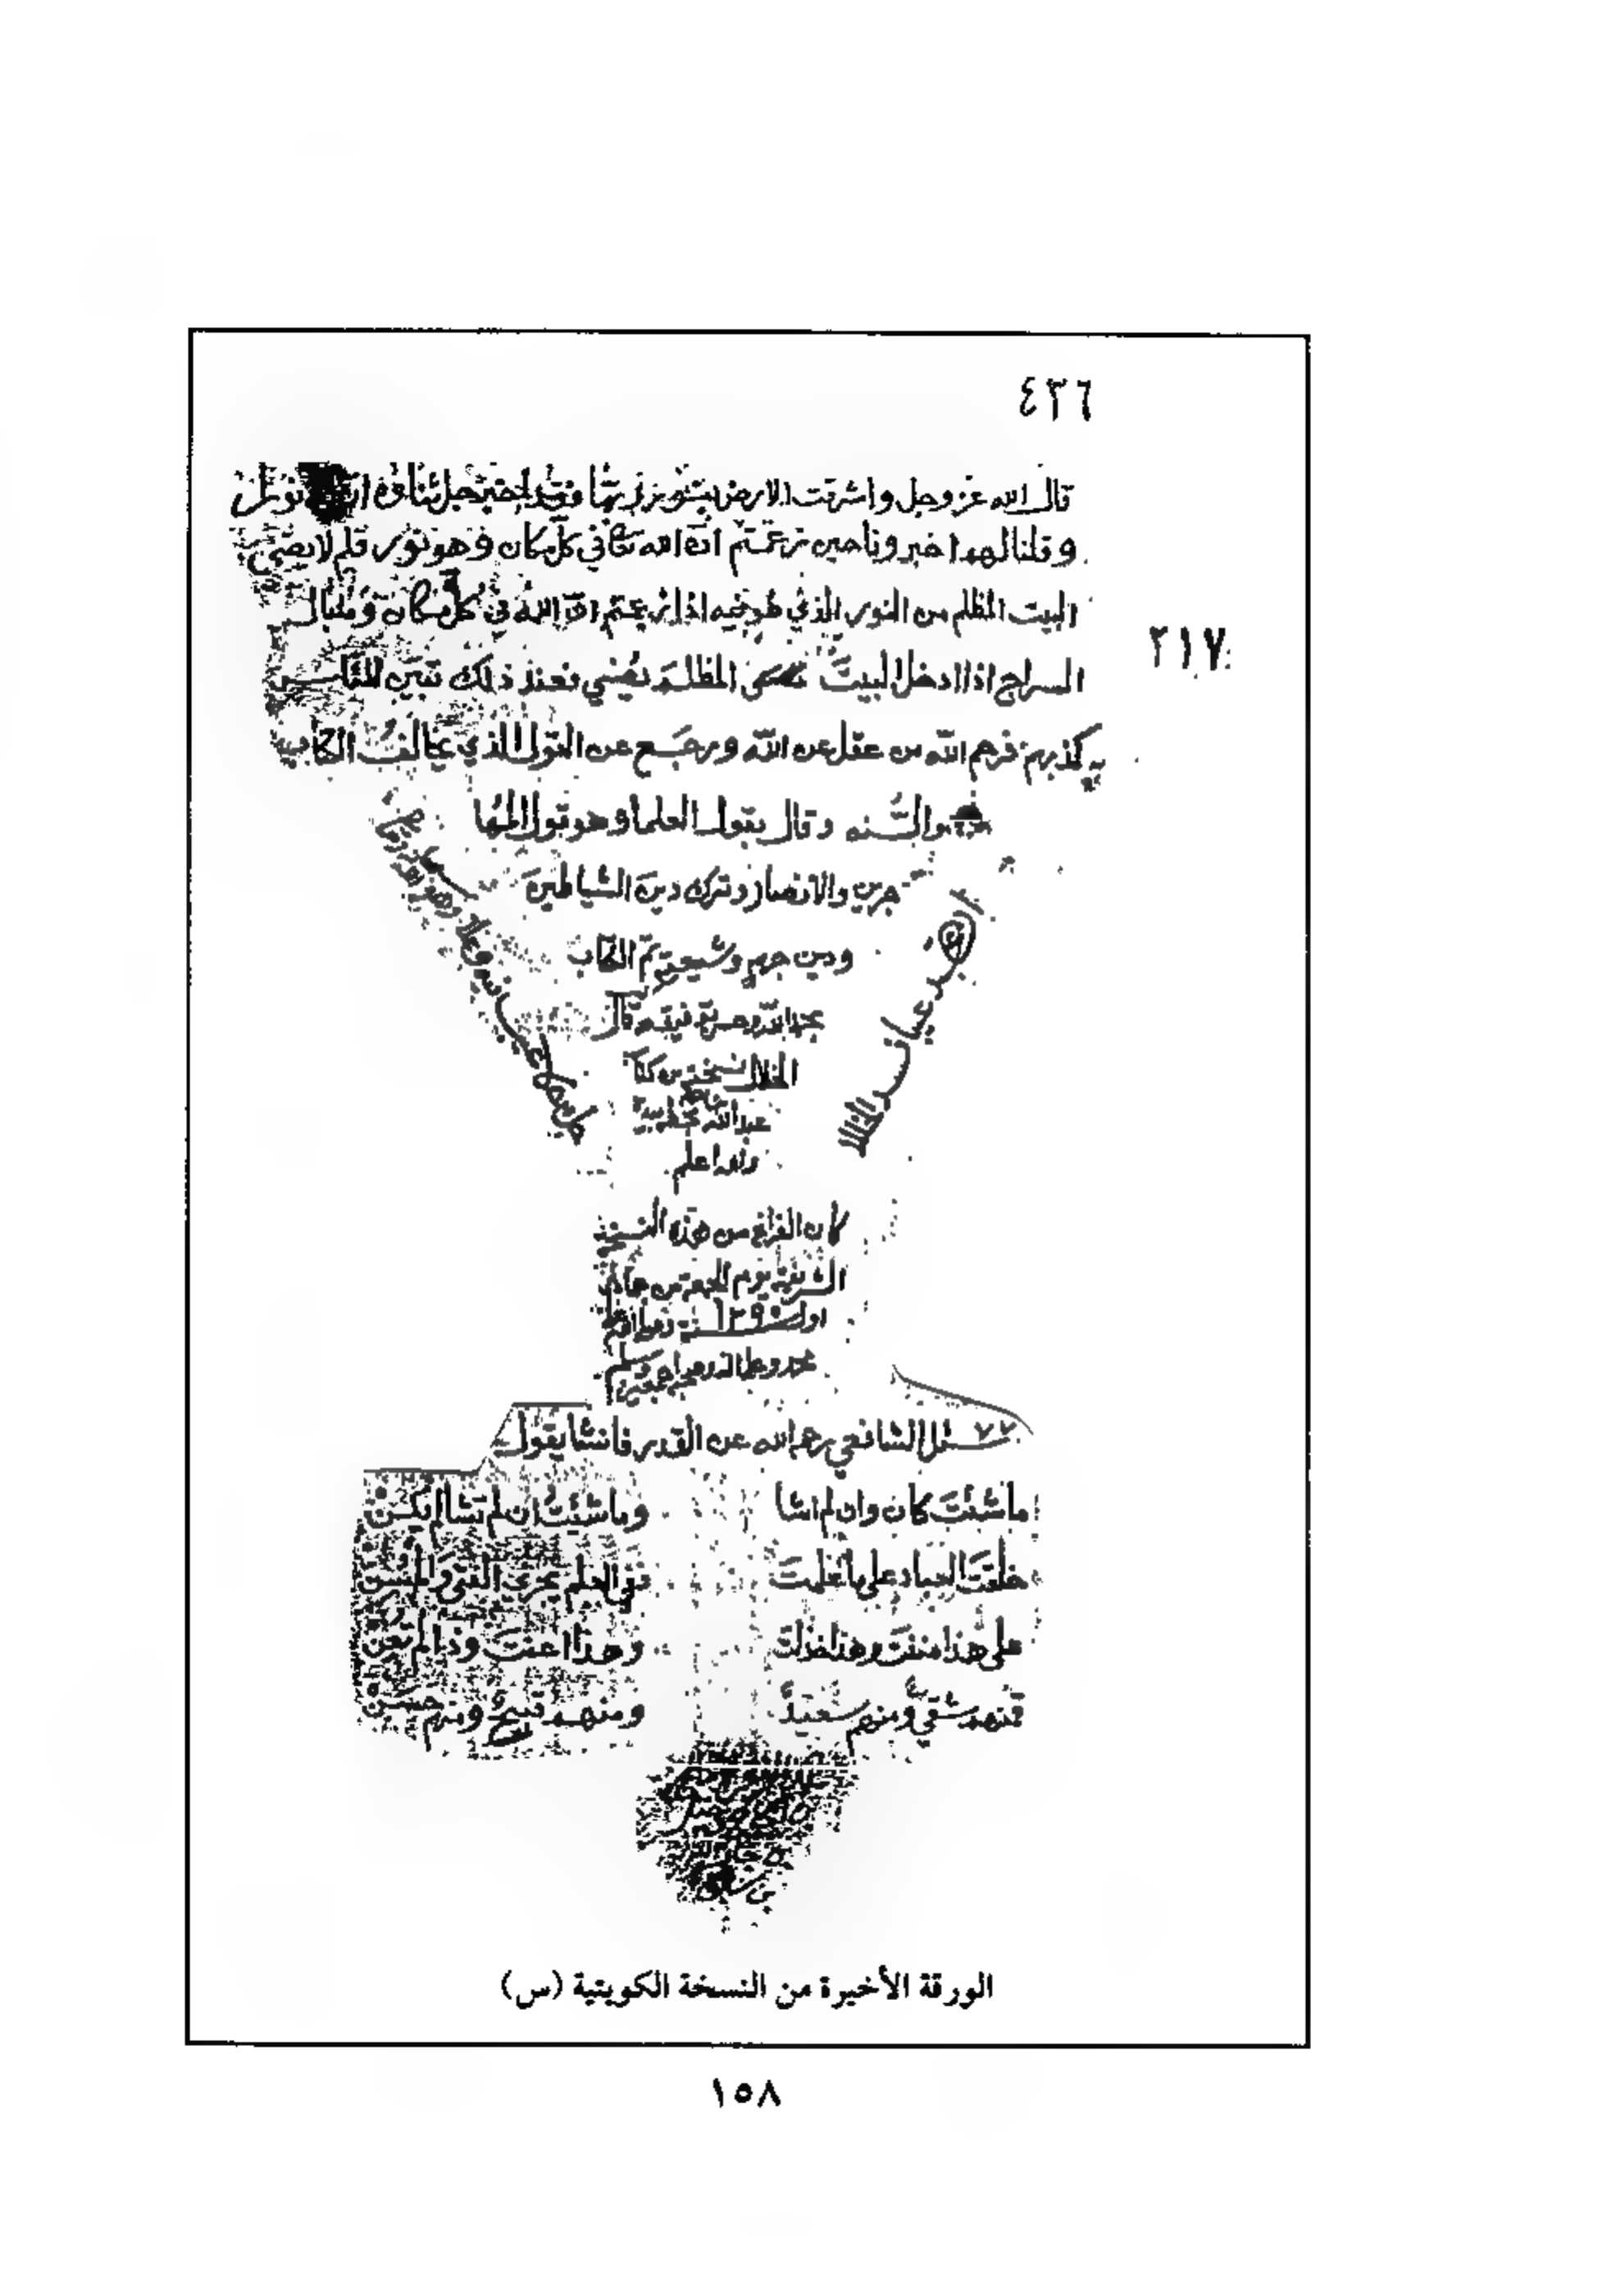 ٤٣٦
قال الله عز وجل واشرقت الارض بنور ربها فقد اخبر جل ثناؤه ان نورا
وقلنا لهم اخبرونا حين زعمتم ان الله تعالى في كل مكان وهو نور فلم لا يضي
البيت المظلم من النور الذي هو فيه اذا زعمتم ان الله في كل مكان وما بال
٢١٧
السراج اذا ادخل البيت المظلم يضي فعند ذلك تبين للناس
كذبهم فرحم الله من عقل عن الله ورجع عن القول الذي يخالف الكتاب
والسنه وقال بقول العلما وهو قول المها
جرين والانصار وترك دين الشياطين
ودين جهم وشيعته تم الكتاب
بحمد الله وحسن توفيقه وقال
الخلال نسخته من كتاب
عبد الله
والله اعلم
كان الفراغ من هذه النسخة
الشريفة يوم الجمعة من جماد
اول سنة ١٢٩٠
محمد وعلى اله وصحبه وسلم
سئل الشافعي رحمه الله عن القدر فانشا يقول
ما شئت كان وان لم اشا وما شئت ان لم تشا لم يكن
خلقت العباد على ما علمت ففي العلم يجري الفتى والمسن
على هذا مننت وهذا خذلت وهذا اعنت وذا لم تعن
فمنهم شقي ومنهم سعيد ومنهم قبيح ومنهم حسن
الورقة الأخيرة من النسخة الكويتية (س)
١٥٨